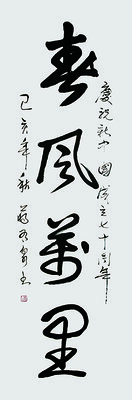 春风万里
慶祝新中國成立七十周年
己亥年秋